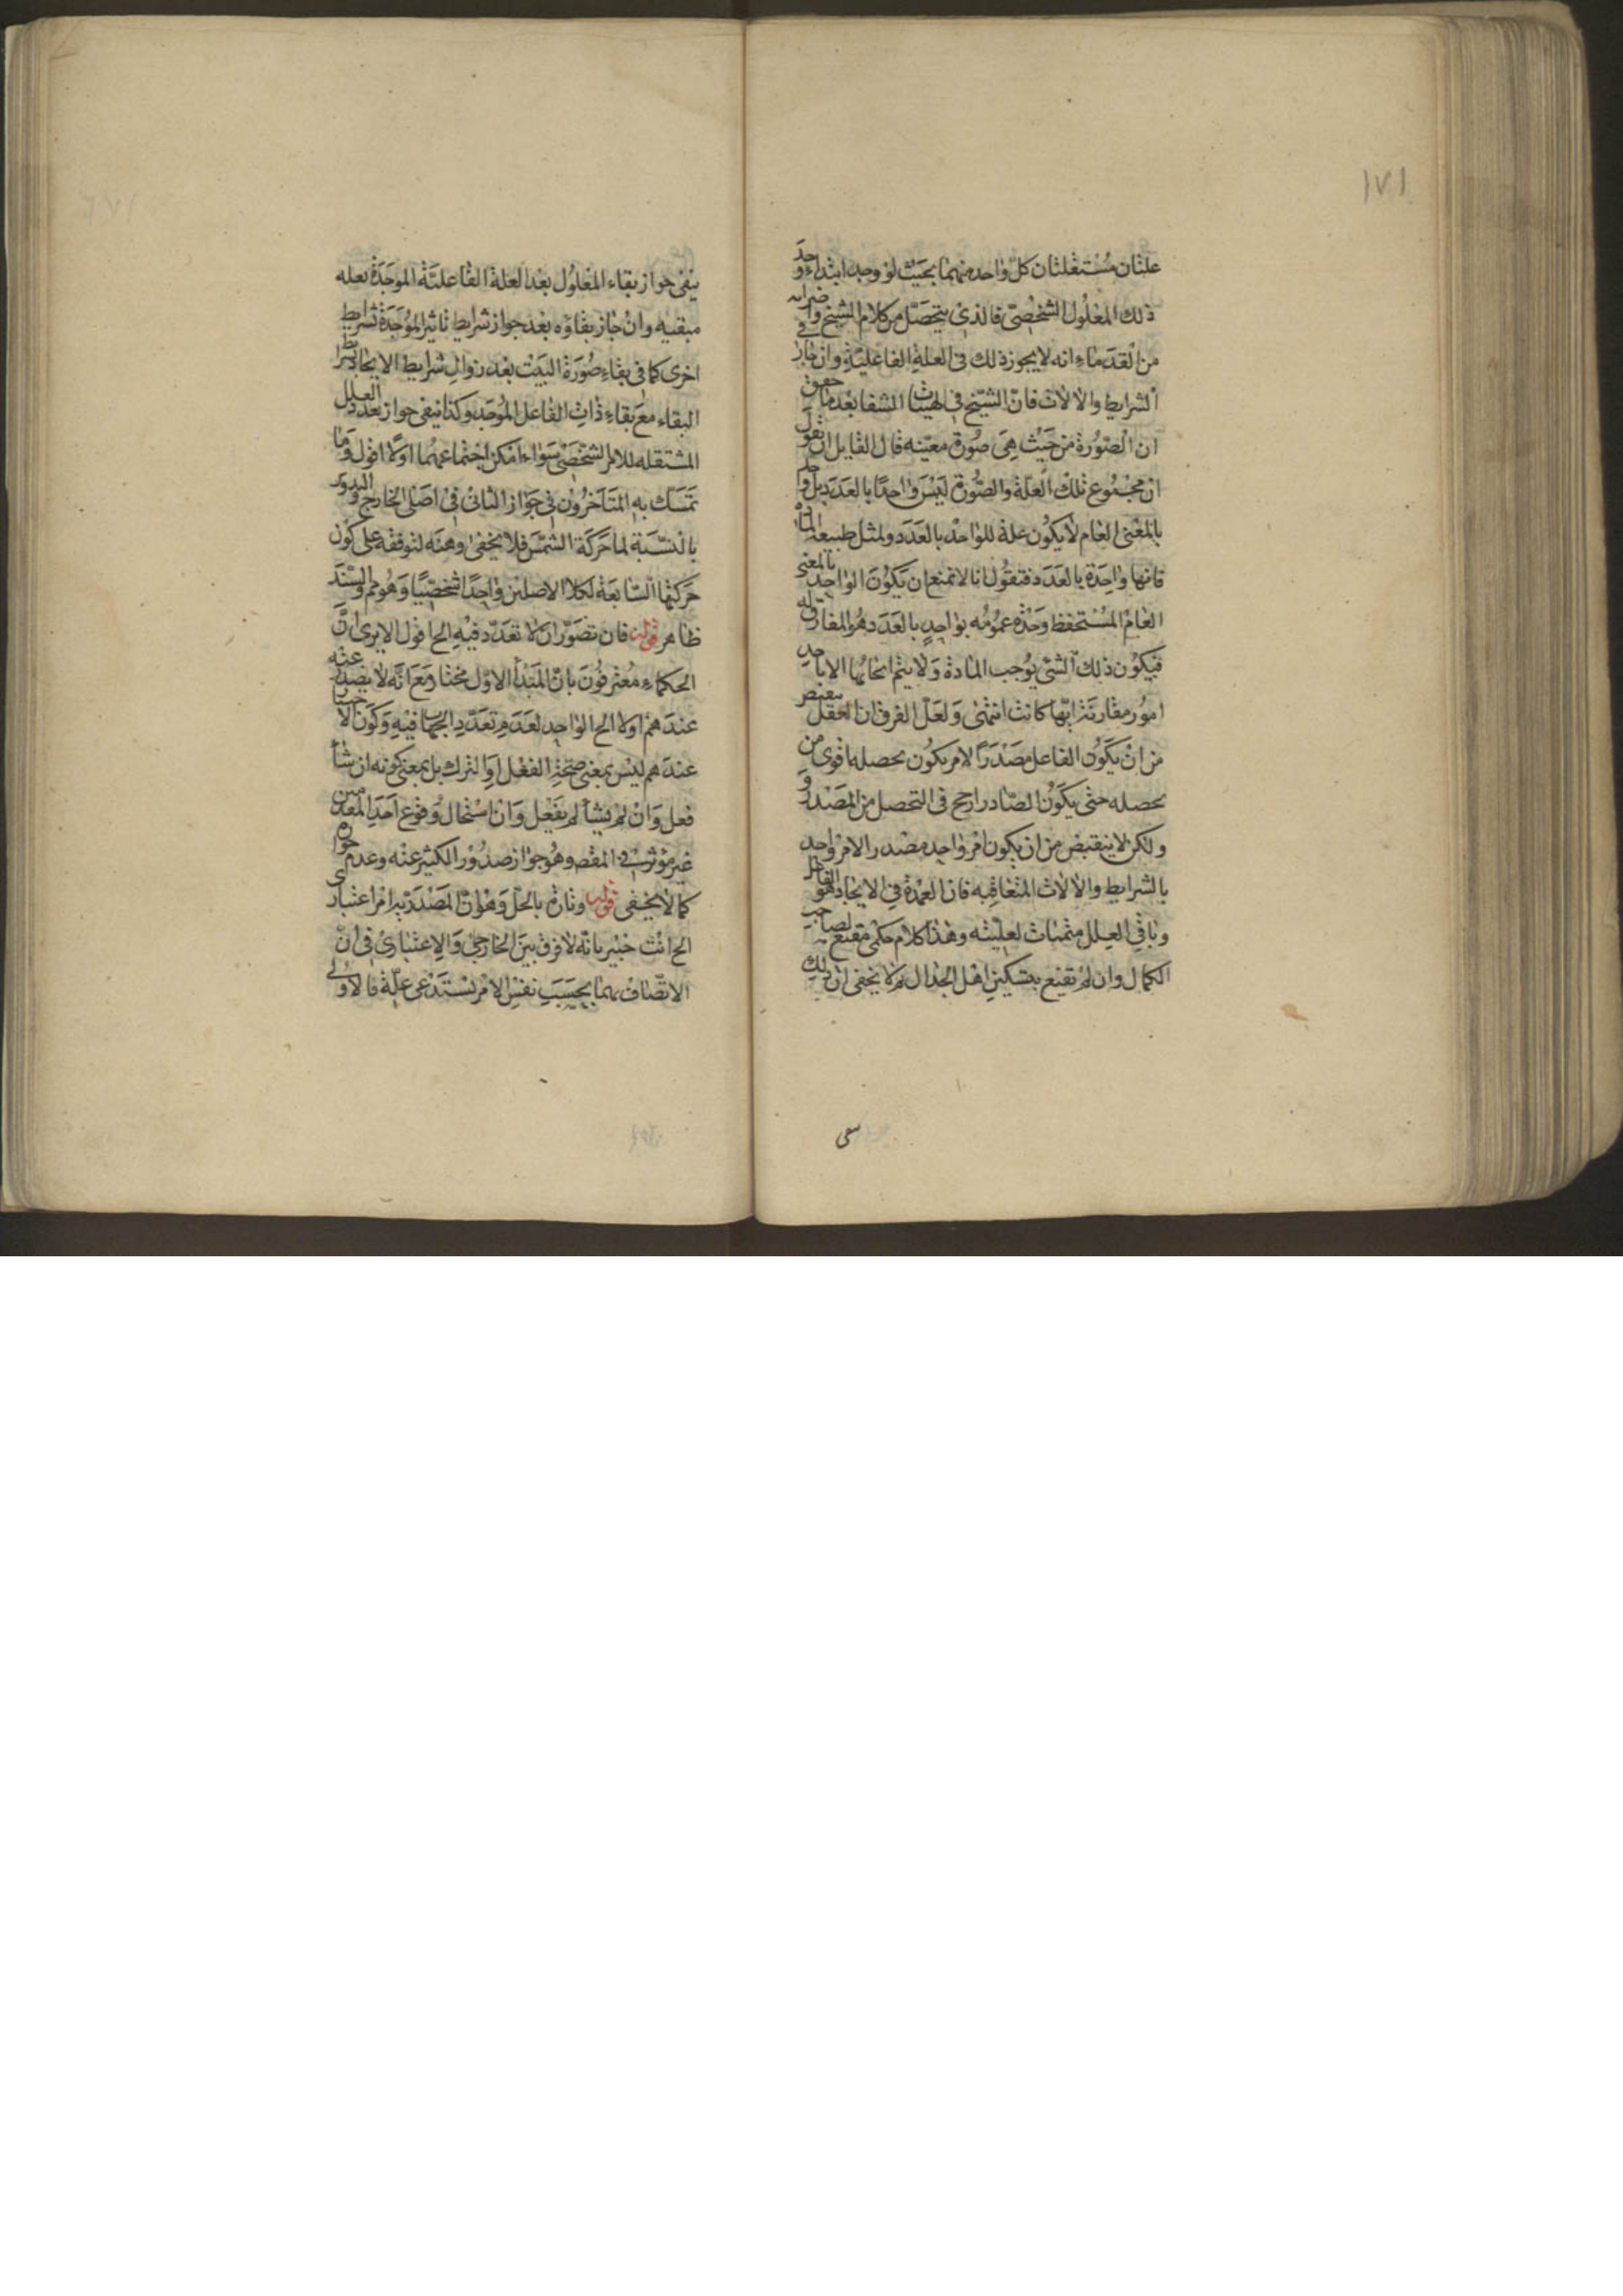 ١٧١
علتان مستقلتان كل واحد منهما بحيث لو وجد ابتداء وجد
ذلك المعلول الشخصي فالذي يتحصل من كلام الشيخ واضرابه
من القدماء انه لا يجوز ذلك في العلة الفاعلية وان جاز في
الشرايط والالات فان الشيخ في الهيات الشفا بعد ما حقق
ان الصورة من حيث هي صورة معينه قال لقايل ان تقول
ان مجموع تلك العلة والصورة ليس واحدا بالعدد بل واحد
بالمعنى العام لا يكون علة للواحد بالعدد ولمثل طبيعة المادة
فانها واحدة بالعدد فنقول انا لا نمنع ان يكون الواحد بالمعنى
العام المستحفظ وحدة عمومه بواحد بالعدد هو المفارق له
فيكون ذلك الشي يوجب المادة ولا يتم ايجابها الا باحد
امور مقارنة ايها كانت انتهى ولعل الفرق ان العقل ينقبض
من ان يكون الفاعل مصدرا لامر يكون تحصله اقوى من
تحصله حتى يكون الصادر ارجح في التحصل من المصدر و
ولكن لا ينقبض من ان يكون امر واحد مصدر الامر واحد
بالشرايط والالات المتعاقبه فان العمدة في الايجاد هو الفاعل
وباقي العلل متممات لعليته وهذا كلام حكمى مقنع لصاحب
الكمال وان لم تقنع بتسكين اهل الجدال ثم لا يخفى ان ذلك
سعى
ينفى جواز بقاء المعلول بعد العلة الفاعلية الموجدة بعله
مبقيه وان جاز بقاؤه بعد جواز شرايط تاثير الموجدة بشرايط
اخرى كما في بقاء صورة البيت بعد زوال شرايط الايجاد بشرايط
البقاء مع بقاء ذات الفاعل الموجد وكذا ينفى جواز تعدد العلل
المستقله للامر الشخصي سواء امكن اجتماعهما اولا اقول وما
تمسك به المتاخرون في جواز الثاني في اصلى الخارج والتدوير
بالنسبة لما حركة الشمس فلا يخفى وهنه لتوقفه على كون
حركتها السابعة لكلا الاصلين واحدا شخصيا وهو مم والسند
ظاهر قوله فان تصور ان لا تعدد فيه الح اقول الا يرى ان
الحكماء معترفون بان المبدأ الاول مختار مع انه لا يصدر عنه
عندهم اولا الح الواحد لعدم تعدد الجهات فيه وكون الاختيار
عندهم ليس بمعنى صحة الفعل او الترك بل بمعنى كونه ان شأ
فعل وان لم يشأ لم يفعل وان استحال وقوع احد المقدمين
غير موثر في المقصد وهو جواز صدور الكثير عنه وعدم جوازه
كما لا يخفى قوله وتارة بالحل وهو ان المصدرية امر اعتبارى
الح انت خبير بانه لا فرق بين الخارجي والاعتبارى في ان
الاتصاف بهما بحسب نفس الامر تستدعى علة فالاولى